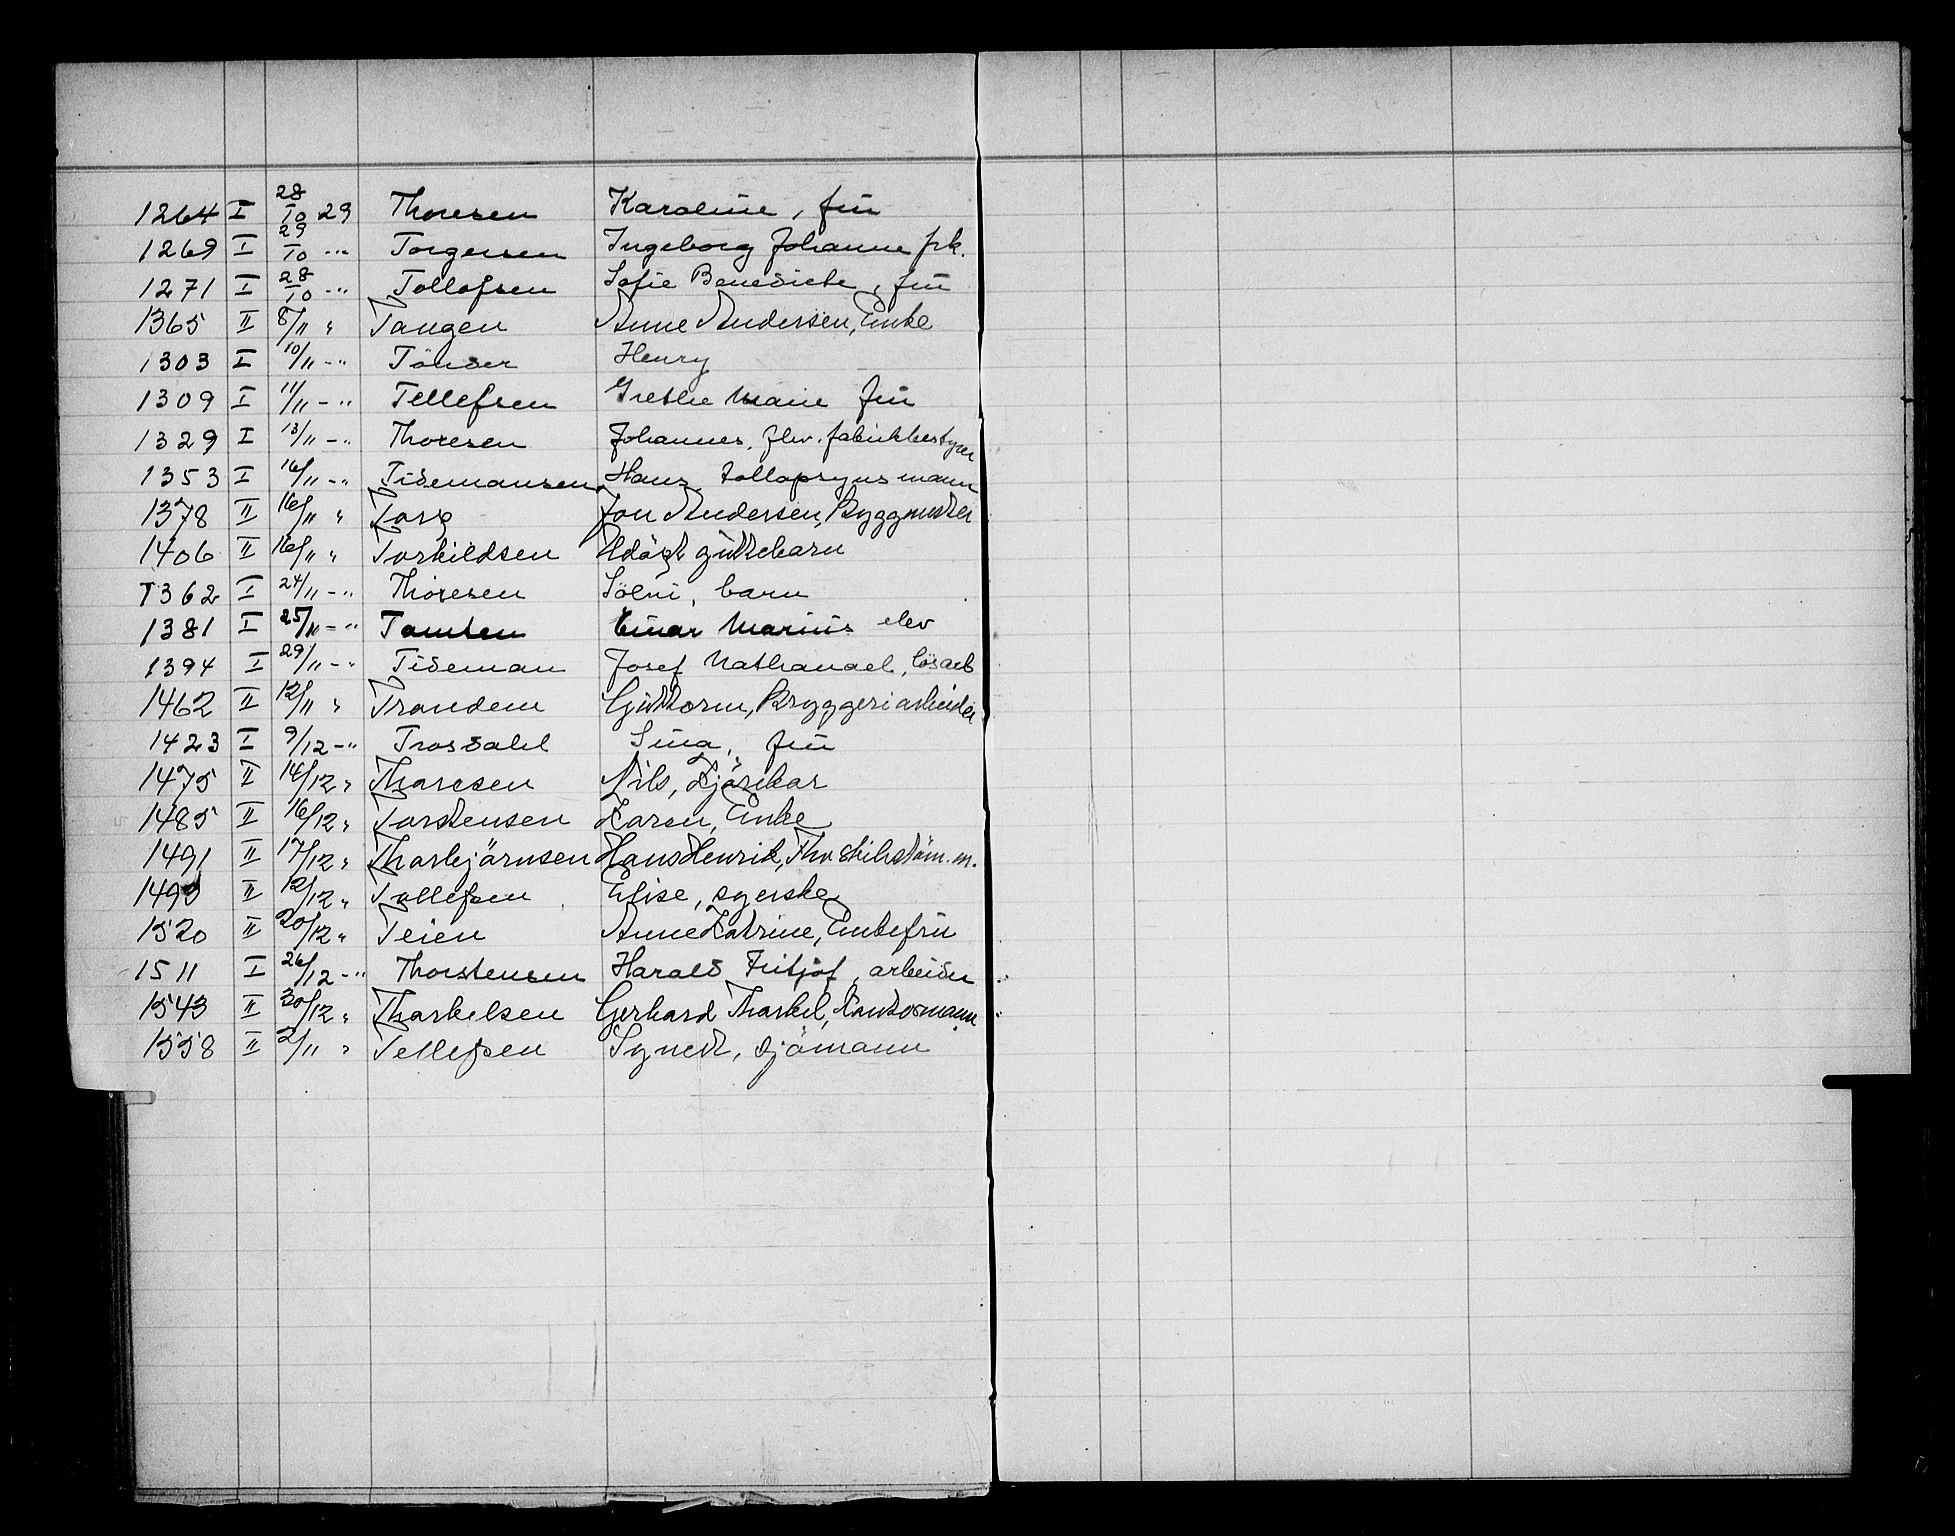 1264 I 28/10 29 Thoresen Karoline, frū
1269 I 29/10 -"- Torgersen Ingeborg Johanne frk.
1271 I 28/10 -"- Tollofsen Sofie Benedicte, frū
1365 II 8/11 " Tangen Anne Andersen, Enke
1303 I 10/11 -"- Tönder Henry
1309 I 11/11 -"- Tellefsen Grethe Marie frū
1329 I 13/11 -"- Thoresen Johannes, fhv. fabrikbestyrer
1353 I 16/11 -"- Tidemansen Hans tollopsynsmann
1378 II 16/11 " Torp Jon Andersen, Byggmester
1406 II 16/11 " Torkildsen Udöpt guttebarn
1362 I 24/11 -"- Thoresen Sölvi, barn
1381 I 25/11 -"- Tomten Einar Marius elev
1394 I 29/11 -"- Tideman Josef Nathanael, lösarb
1462 II 12/11 " Trondem Guttorm, Bryggeriarbeider
1423 I 9/12 -"- Trosdahl Sina, frū
1475 II 14/12 " Thoresen Nils, Kjörekar
1485 II 16/12 " Torstensen Karen, Enke
1491 II 17/12 " Thorbjörnsen Hans Henrik, Fhv skibstöm.m.
II 12/12 " Tollefsen Elise, syerske
1520 II 20/12 " Teien Anne Katrine, Enkefru
1511 I 26/12 -"- Thorstensen Harald Fritjof, arbeider
1543 II 30/12 " Thorkelsen Gerhard Thorkel, Kontormann
1558 II 2/11 " Tellefsen Synert, sjömann